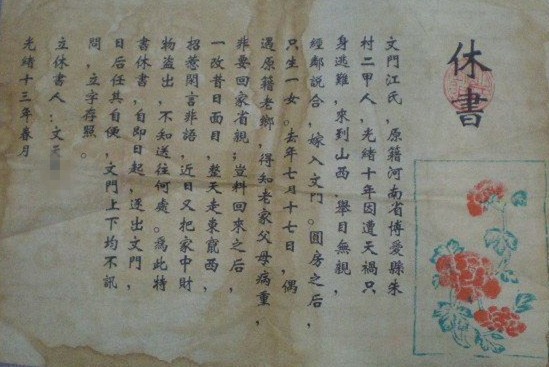 休書
文門江氏，原籍河南省博愛縣朱
村二甲人，光緒十年因遭天禍只
身逃難，來到山西，舉目無親，
經鄰説合，嫁入文門。圓房之后，
只生一女。去年七月十七日，偶
遇原籍老鄉，得知老家父母病重，
非要回家省親；豈料回來之后，
一改昔日面目，整天走東竄西，
招惹閑言非語，近日又把家中財
物盜出，不知送往何處。為此特
書休書，自即日起，逐出文門，
日后任其自便，文門上下均不訊
問，立字存照。
立休書人：文
光緒十三年春月